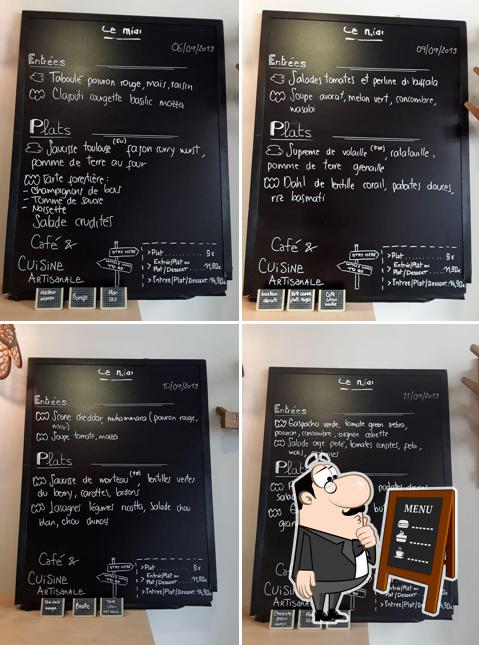 Le midi
06/09/2019
Entrées
Taboulé poivron rouge, maïs, raisin
Clafouti courgette basilic mozza
Plats
Saucisse toulouse façon curry wurst,
pomme de terre au four
Tarte forestière:
- champignons de bois
- Tomme de savoie
- Noisette
Salade crudités
Café &
CUISINE
ARTISANALE
STAY HERE
> Plat 9€
> Entrée/Plat ou
Plat/Dessert 11,90€
> Entrée/Plat/Dessert 14,90€
Le midi
09/09/2019
Entrées
Salades tomates et perline di buffala
Soupe avocat, melon vert, concombre,
wasabi
Plats
Supreme de volaille, ratatouille,
pomme de terre grenaille
Dahl de lentille corail, patates douces,
riz basmati
Café &
CUISINE
ARTISANALE
STAY HERE
> Plat 9€
> Entrée/Plat ou
Plat/Dessert 11,90€
> Entrée/Plat/Dessert 14,90€
Le midi
10/09/2019
Entrées
Scone cheddar, muhammara (poivron rouge,
noix)
Soupe tomate, mozza
Plats
Saucisse de morteau, lentilles vertes
du berry, carottes, lardons
Lasagnes légumes ricotta, salade chou
blanc, chou chinois
Café &
CUISINE
ARTISANALE
STAY HERE
> Plat 9€
> Entrée/Plat ou
Plat/Dessert 11,90€
> Entrée/Plat/Dessert 14,90€
Le midi
11/09/2019
Entrées
Gaspacho verte, tomate green zebra,
poivron, concombre, oignon cébette
Salade orge perlé, tomates confites, feta,
Plats
MENU